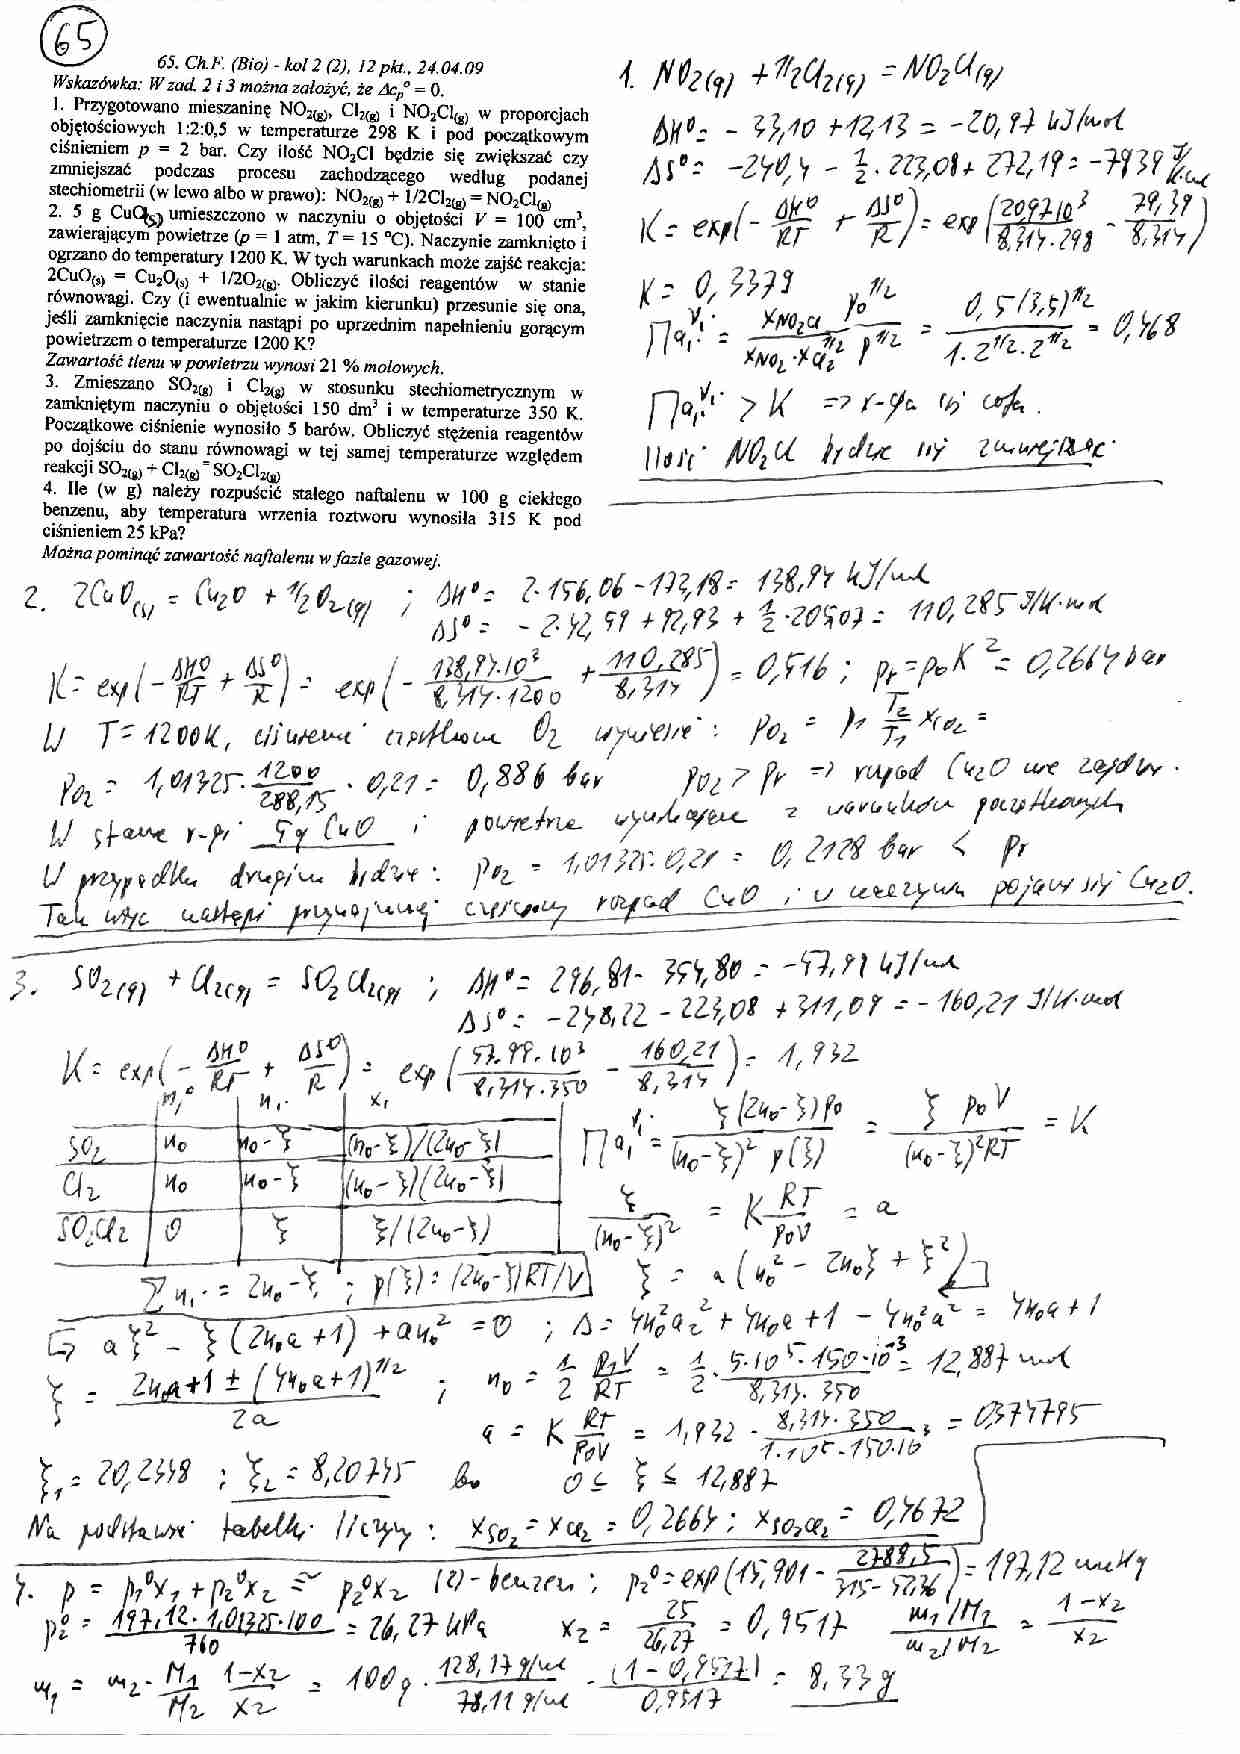 65
65. Ch.F. (Bio) - kol 2 (2), 12 pkt., 24.04.09
Wskazówka: W zad. 2 i 3 można założyć, że Δcp° = 0.
1. Przygotowano mieszaninę NO2(g), Cl2(g) i NO2Cl(g) w proporcjach
objętościowych 1:2:0,5 w temperaturze 298 K i pod początkowym
ciśnieniem p = 2 bar. Czy ilość NO2Cl będzie się zwiększać czy
zmniejszać podczas procesu zachodzącego według podanej
stechiometrii (w lewo albo w prawo): NO2(g) + 1/2Cl2(g) = NO2Cl(g)
2. 5 g CuO(s) umieszczono w naczyniu o objętości V = 100 cm3,
zawierającym powietrze (p = 1 atm, T = 15 °C). Naczynie zamknięto i
ogrzano do temperatury 1200 K. W tych warunkach może zajść reakcja:
2CuO(s) = Cu2O(s) + 1/2O2(g). Obliczyć ilości reagentów w stanie
równowagi. Czy (i ewentualnie w jakim kierunku) przesunie się ona,
jeśli zamknięcie naczynia nastąpi po uprzednim napełnieniu gorącym
powietrzem o temperaturze 1200 K?
Zawartość tlenu w powietrzu wynosi 21 % molowych.
3. Zmieszano SO2(g) i Cl2(g) w stosunku stechiometrycznym w
zamkniętym naczyniu o objętości 150 dm3 i w temperaturze 350 K.
Początkowe ciśnienie wynosiło 5 barów. Obliczyć stężenia reagentów
po dojściu do stanu równowagi w tej samej temperaturze względem
reakcji SO2(g) + Cl2(g) = SO2Cl2(g)
4. Ile (w g) należy rozpuścić stałego naftalenu w 100 g ciekłego
benzenu, aby temperatura wrzenia roztworu wynosiła 315 K pod
ciśnieniem 25 kPa?
Można pominąć zawartość naftalenu w fazie gazowej.
1. NO2(g) + 1/2Cl2(g) = NO2Cl(g)
ΔH° = - 33,10 + 12,13 = -20,97 kJ/mol
ΔS° = -240,4 - 1/2 · 223,08 + 272,19 = -79,39 J/K·mol
K = exp(- ΔH°/RT + ΔS°/R) = exp(20,97·10^3/8,314·298 - 79,39/8,314)
K = 0,3379
Πai^νi = xNO2Cl p0^1/2 / xNO2·xCl2^1/2 p^1/2 = 0,5(3,5)^1/2 / 1·2^1/2·2^1/2 = 0,468
Πai^νi > K => r-cja się cofa.
Ilość NO2Cl będzie się zmniejszać
2. 2CuO(s) = Cu2O + 1/2O2(g) ; ΔH° = 2·156,06 - 173,18 = 138,94 kJ/mol
ΔS° = - 2·42,59 + 92,93 + 1/2·205,07 = 110,285 J/K·mol
K = exp(- ΔH°/RT + ΔS°/R) = exp(- 138,94·10^3/8,314·1200 + 110,285/8,314) = 0,516 ; pr = p0K^2 = 0,2664 bar
W T = 1200K, ciśnienie cząstkowe O2 wyniesie : pO2 = p1 T2/T1 xO2 =
pO2 = 1,01325·1200/288,15 · 0,21 = 0,886 bar pO2 > pr => rozpad CuO nie zajdzie.
W stanie r-gi 5g CuO i powietrze z warunków początkowych
W przypadku drugim będzie : pO2 = 1,01325·0,21 = 0,2128 bar < pr
Tak więc nastąpi przynajmniej częściowy rozpad CuO i w naczyniu pojawi się Cu2O.
3. SO2(g) + Cl2(g) = SO2Cl2(g) ; ΔH° = 296,81 - 354,80 = -57,99 kJ/mol
ΔS° = -248,22 - 223,08 + 311,09 = -160,21 J/K·mol
K = exp(- ΔH°/RT + ΔS°/R) = exp(57,99·10^3/8,314·350 - 160,21/8,314) = 1,932
ni° ni xi
SO2 n0 n0-ξ (n0-ξ)/(2n0-ξ)
Cl2 n0 n0-ξ (n0-ξ)/(2n0-ξ)
SO2Cl2 0 ξ ξ/(2n0-ξ)
Σni = 2n0-ξ ; p(ξ) = (2n0-ξ)RT/V
Πai^νi = ξ(2n0-ξ)p0 / (n0-ξ)^2 p(ξ) = ξ p0V / (n0-ξ)^2RT = K
ξ/(n0-ξ)^2 = K RT/p0V = a
ξ = a(n0^2 - 2n0ξ + ξ^2)
aξ^2 - ξ(2n0a+1) + an0^2 = 0 ; Δ = 4n0^2a^2 + 4n0a + 1 - 4n0^2a^2 = 4n0a + 1
ξ = 2n0a+1 ± (4n0a+1)^1/2 / 2a ; n0 = 1/2 p1V/RT = 1/2 · 5·10^5·150·10^-3 / 8,314·350 = 12,887 mol
a = K RT/p0V = 1,932 · 8,314·350 / 1·10^5·150·10^-3 = 0,374795
ξ1 = 20,2448 ; ξ2 = 8,20345 bo 0 ≤ ξ ≤ 12,887
Na podstawie tabelki liczymy : xSO2 = xCl2 = 0,2664 ; xSO2Cl2 = 0,4672
4. p = p1°x1 + p2°x2 ≅ p2°x2 (2) - benzen ; p2° = exp(15,901 - 2788,5/315-52,36) = 197,12 mmHg
p2° = 197,12·1,01325·100/760 = 26,27 kPa x2 = 25/26,27 = 0,9517 m1/M1 / m2/M2 = 1-x2/x2
m1 = m2 · M1/M2 1-x2/x2 = 100g · 128,17 g/mol / 78,11 g/mol · (1 - 0,9517) / 0,9517 = 8,33 g